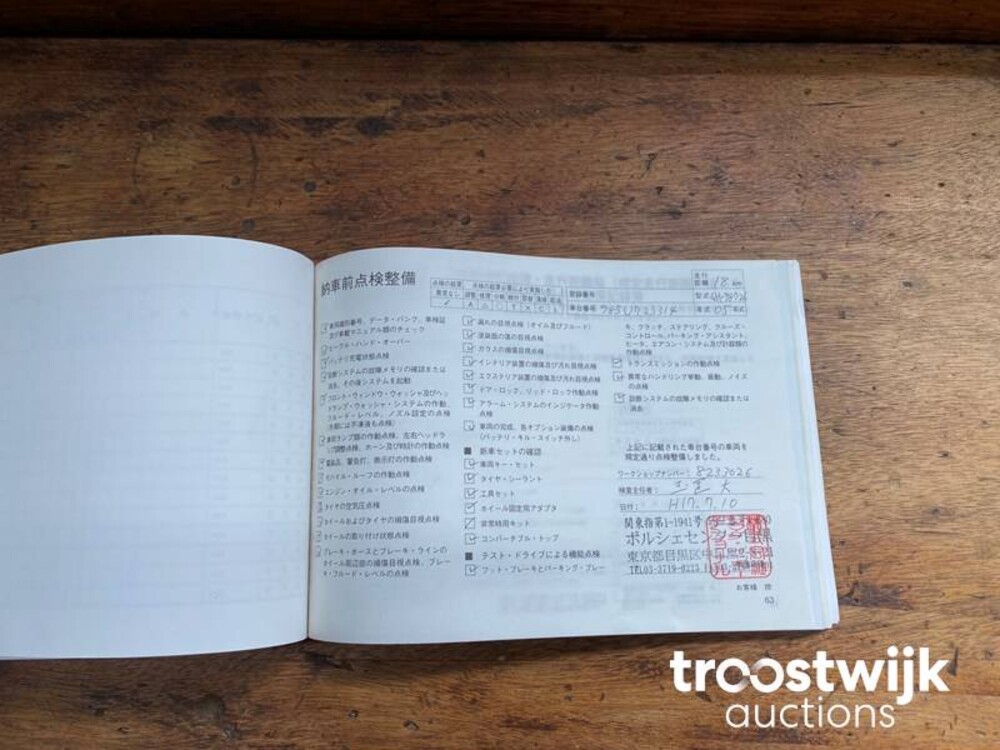 納車前点検整備
点検の結果
異常なし
登録番号
車台番号
走行
距離 18 km
型式
年式 '05 年式
車両識別番号、データ・バンク、車検証
及び車載マニュアル類のチェック
ビークル・ハンド・オーバー
バッテリ充電状態点検
診断システムの故障メモリの確認または
消去、その後システムを起動
フロント・ウィンドウ・ウォッシャ及びヘッ
ドランプ・ウォッシャ・システムの作動、
フルード・レベル、ノズル設定の点検
（冬期には不凍液も点検）
車両ランプ類の作動点検、左右ヘッドラ
ンプ調整点検、ホーン及び時計の作動点検
電装品、警告灯、表示灯の作動点検
モバイル・ルーフの作動点検
エンジン・オイル・レベルの点検
タイヤの空気圧点検
ホイールおよびタイヤの損傷目視点検
ホイールの取り付け状態点検
ブレーキ・ホースとブレーキ・ラインの
ホイール周辺部の損傷目視点検、ブレー
キ・フルード・レベルの点検
漏れの目視点検（オイル及びフルード）
塗装面の傷の目視点検
ガラスの損傷目視点検
インテリア装置の損傷及び汚れ目視点検
エクステリア装置の損傷及び汚れ目視点検
ドア・ロック、リッド・ロック作動点検
アラーム・システムのインジケータ作動
点検
車両の完成、各オプション装備の点検
（バッテリ・キル・スイッチ外し）
■ 新車セットの確認
車両キー・セット
タイヤ・シーラント
工具セット
ホイール固定用アダプタ
非常時用キット
コンバーチブル・トップ
■ テスト・ドライブによる機能点検
フット・ブレーキとパーキング・ブレー
キ、クラッチ、ステアリング、クルーズ・
コントロール、パーキング・アシスタント、
ヒータ、エアコン・システム及び計器類の
作動点検
トランスミッションの作動点検
異常なハンドリング挙動、振動、ノイズ
の点検
診断システムの故障メモリの確認または
消去
上記に記載された車台番号の車両を
規定通り点検整備しました。
ワークショップナンバー： 8233026
検査主任者：
日付： H17.7.10
関東指第1-1941号
ポルシェセンター目黒
東京都目黒区中
TEL03-3719-0213
お客様 控
63
troostwijk
auctions